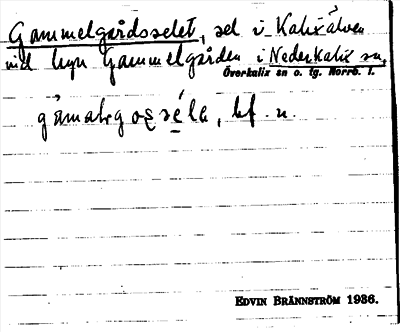 Gammelgårdsselet, sel i Kalixälven
vid byn Gammelgården i Nederkalix sn.
Överkalix sn o. tg. Norrb. l.
bf. n.
EDVIN BRÄNNSTRÖM 1936.